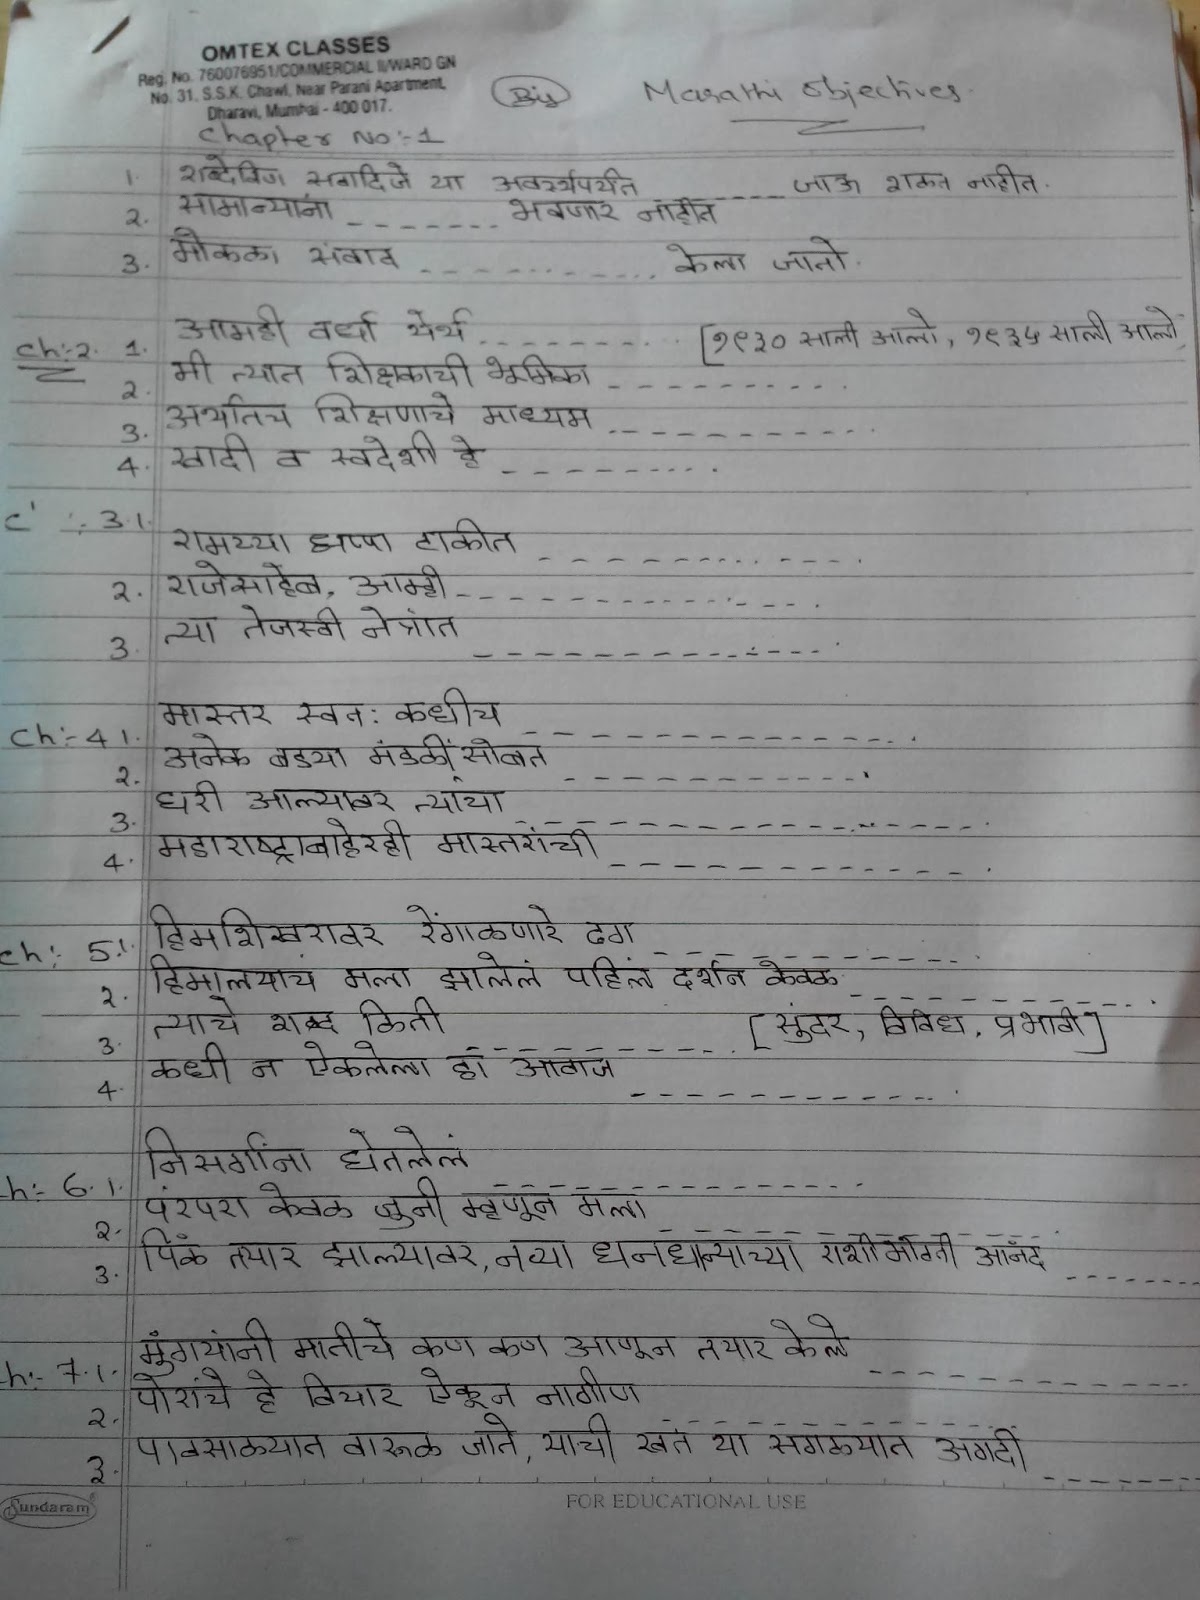 OMTEX CLASSES
Reg. No. 760076951/COMMERCIAL II/WARD GN
No. 31, S.S.K. Chawl, Near Parani Apartment,
Dharavi, Mumbai - 400 017.
Marathi Objectives.
Chapter No:-1
1. शब्देविण संवादिजे या अवस्थेपर्यंत ------ जाऊ शकत नाहीत.
2. सामान्यांना ------- भवणार नाहीत
3. मोकळा संवाद ------------ केला जातो.
Ch:-2. 1. आम्ही वर्धा येथे --------- [१९३० साली आलो, १९३५ साली आलो]
2. मी त्यात शिक्षकाची भूमिका ----------
3. अर्थातच शिक्षणाचे माध्यम -----------
4. खादी व स्वदेशी हे ---------
3 1. रामय्या धापा टाकीत -------------
2. राजेसाहेब, आम्ही --------------
3. त्या तेजस्वी नेत्रांत --------------
Ch:-4 1. मास्तर स्वत: कधीच ----------------
2. अनेक बड्या मंडळींसोबत ------------
3. घरी आल्यावर त्यांचा ------------------
4. महाराष्ट्राबाहेरही मास्तरांची ---------------
Ch:- 5. 1. हिमशिखरावर रेंगाळणारे ढग -------------
2. हिमालयाचं मला झालेलं पहिलं दर्शन केवळ -------------
3. त्याचे शब्द किती ----------- [सुंदर, विविध, प्रभावी]
4. कधी न ऐकलेला हा आवाज -------------
h:- 6. 1. निसर्गाना घेतलेलं ----------------
2. परंपरा केवळ जुनी म्हणून मला -------------
3. पिकं तयार झाल्यावर, नव्या धनधान्याच्या राशीभोवती आनंद -------
h:- 7. 1. मुंग्यांनी मातीचे कण कण आणून तयार केले -------------
2. पोरांचे हे विचार ऐकून नागीण ----------------
3. पावसाळ्यात वारूळ जाते, याची खंत या सगळ्यात अगदी -------
Sundaram
FOR EDUCATIONAL USE